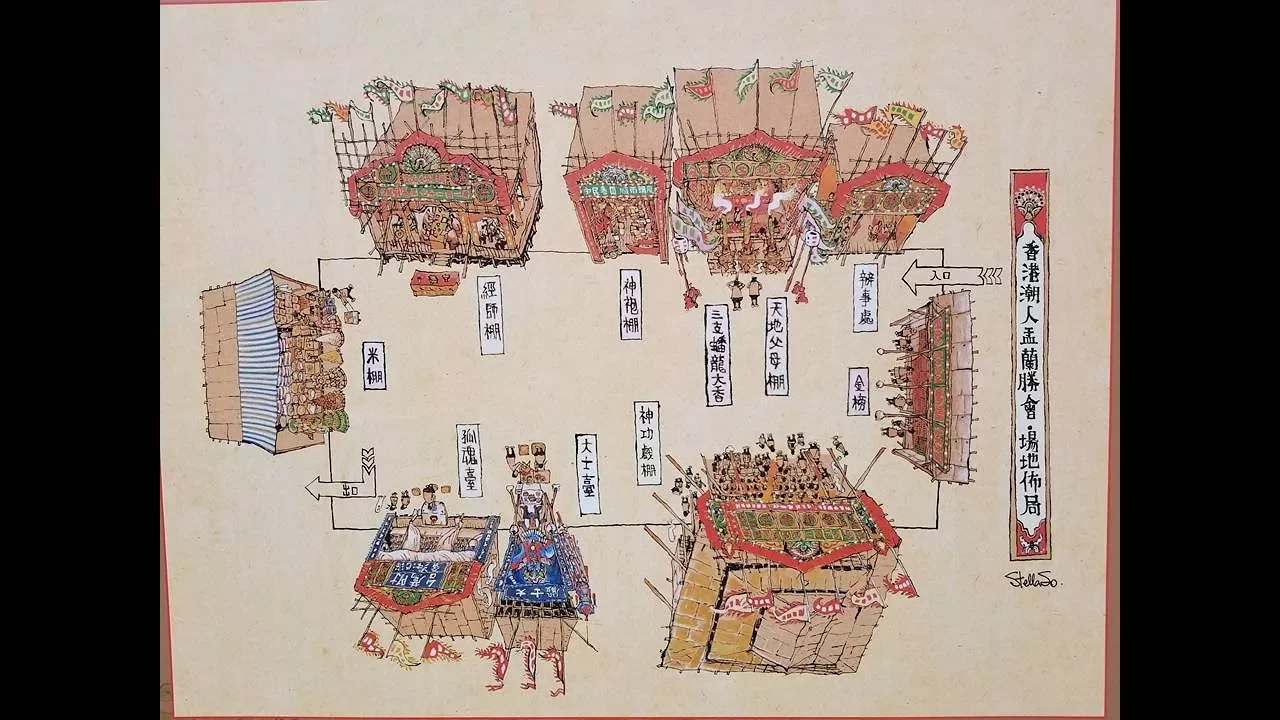 香港潮人盂蘭勝會·場地佈局
StellaSo.
入口
辦事處
天地父母棚
三支蟠龍大香
神袍棚
經師棚
米棚
金榜
神功戲棚
大士臺
孤魂臺
出口